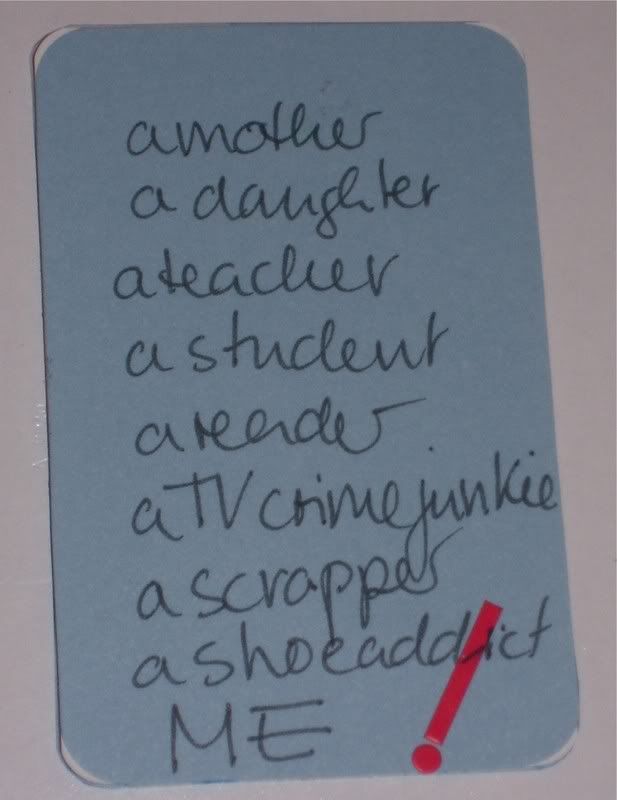 a mother
a daughter
a teacher
a student
a reader
a TV crime junkie
a scrapper
a shoeaddict
ME !